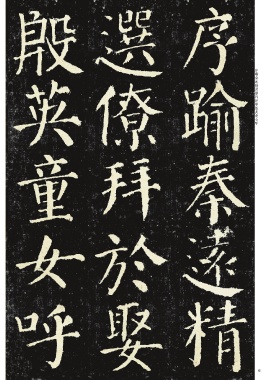 序踰秦遠精
選僚拜於娶
殷英童女呼